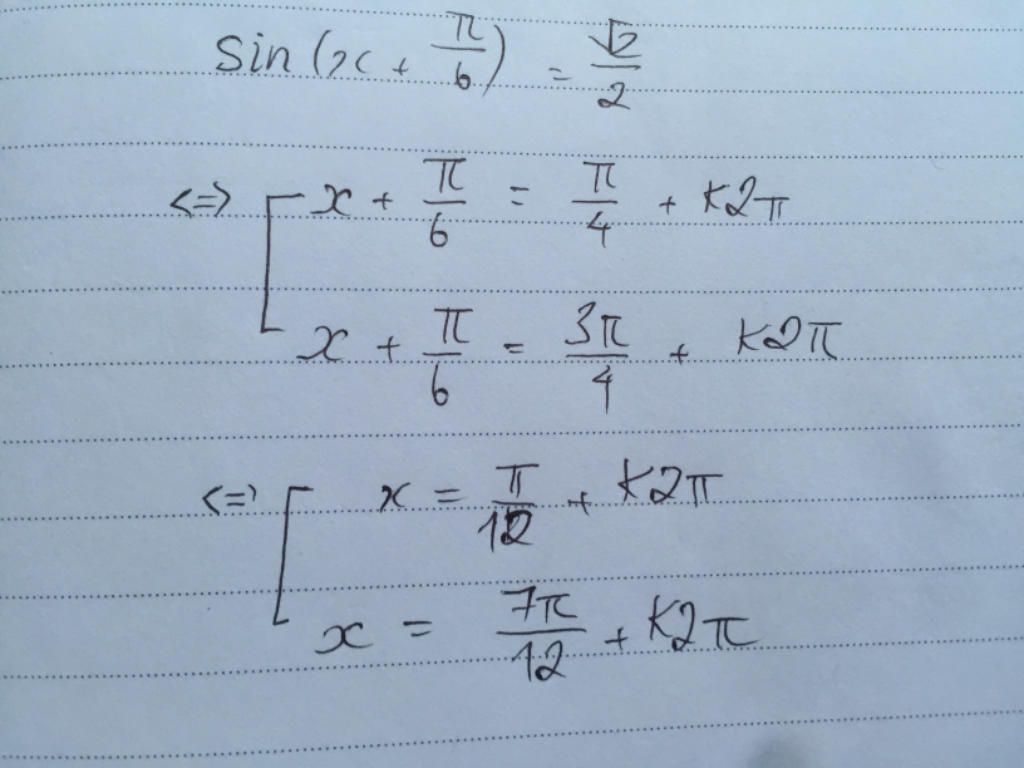 sin(x + π/6) = √2/2
<=> [ x + π/6 = π/4 + k2π
x + π/6 = 3π/4 + k2π
<=> [ x = π/12 + k2π
x = 7π/12 + k2π